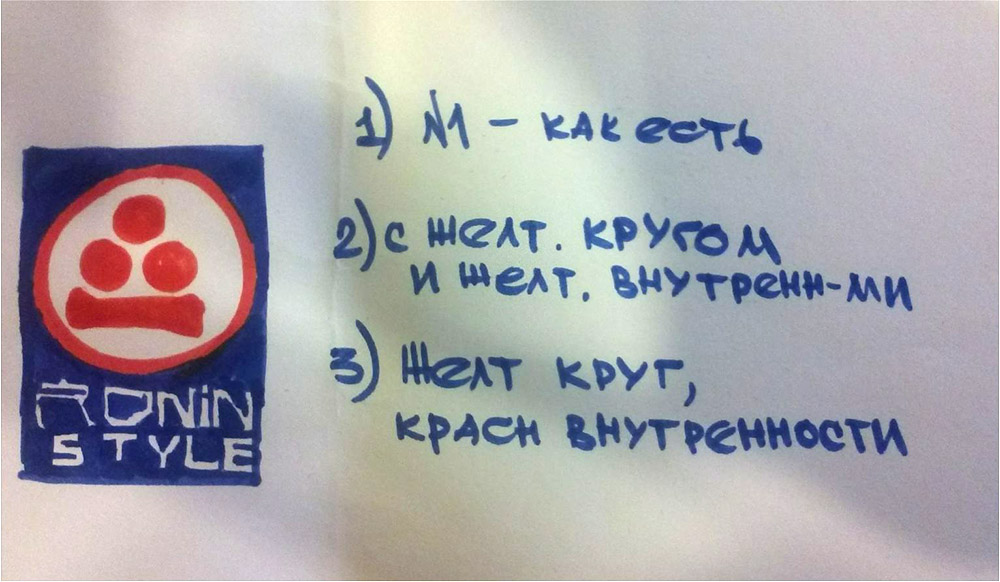 RONiN
STYLE
1) №1 - как есть
2) с желт. кругом
и желт. внутренн-ми
3) Желт круг,
красн внутренности